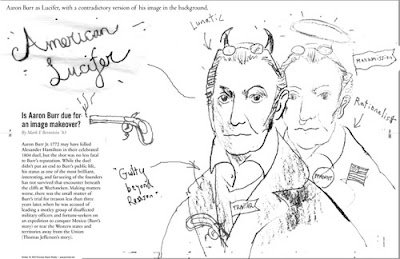 Aaron Burr as Lucifer, with a contradictory version of his image in the background.
American
Lucifer
Lunatic
Rationalist
Is Aaron Burr due for
an image makeover?
By Mark F. Bernstein '83
Aaron Burr Jr. 1772 may have killed
Alexander Hamilton in their celebrated
1804 duel, but the shot was no less fatal
to Burr's reputation. While the duel
didn't put an end to Burr's public life,
his status as one of the most brilliant,
interesting, and favoring of the founders
has not survived that encounter beneath
the cliffs at Weehawken. Making matters
worse, there was the small matter of
Burr's trial for treason less than three
years later, when he was accused of
leading a motley group of disaffected
military officers and fortune-seekers on
an expedition to conquer Mexico (Burr's
story) or tear the Western states and
territories away from the Union
(Thomas Jefferson's story).
"Guilty
beyond
Reason"
TRAITOR